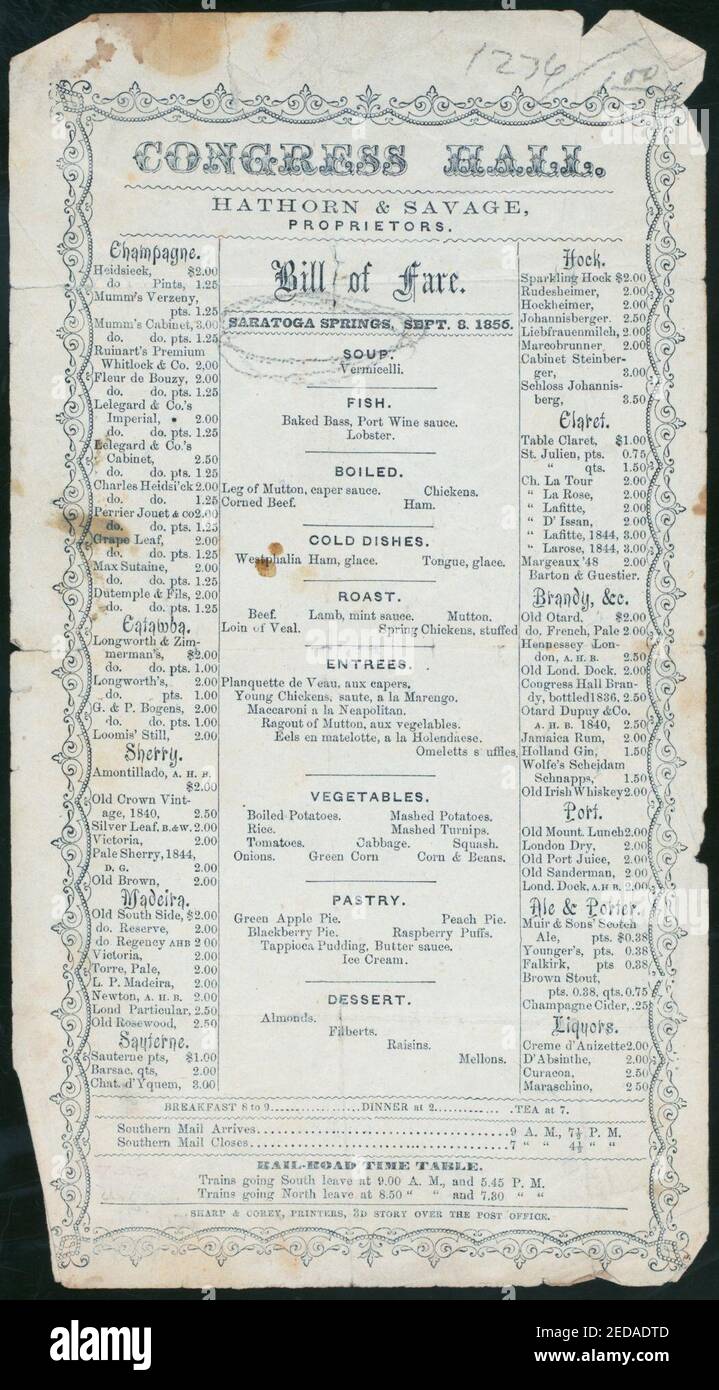 1236/1.00
CONGRESS HALL.
HATHORN & SAVAGE,
PROPRIETORS.
Champagne.
Heidsieck, $2.00
do Pints, 1.25
Mumm's Verzeny,
pts. 1.25
Mumm's Cabinet, 3.00
do. do. pts. 1.25
Ruinart's Premium
Whitlock & Co. 2,00
Fleur de Bouzy, 2.00
do. do. pts. 1.25
Lelegard & Co.'s
Imperial, 2.00
do. do. pts. 1.25
Lelegard & Co.'s
Cabinet, 2.50
do. do. pts. 1 25
Charles Heidsi'ck 2.00
do. do. 1.25
Perrier Jouet & co 2.00
do. do. pts. 1.25
Grape Leaf, 2.00
do. do. pts. 1.25
Max Sutaine, 2.00
do. do. pts. 1.25
Dutemple & Fils, 2.00
do. do. pts. 1.25
Catawba.
Longworth & Zim-
merman's, $2.00
do. do. pts. 1.00
Longworth's, 2.00
do. pts. 1.00
G. & P. Bogens, 2.00
do. do. pts. 1.00
Loomis' Still, 2.00
Sherry.
Amontillado, A. H. B.
$2.00
Old Crown Vint-
age, 1840, 2.50
Silver Leaf, B.&W. 2.00
Victoria, 2.00
Pale Sherry, 1844,
D. G. 2.00
Old Brown, 2.00
Madeira.
Old South Side, $2.00
do. Reserve, 2.00
do Regency AHB 2 00
Victoria, 2.00
Torre, Pale, 2.00
L. P. Madeira, 2.00
Newton, A. H. B. 2.00
Lond Particular, 2.50
Old Rosewood, 2.50
Sauterne.
Sauterne pts, $1.00
Barsac. qts, 2.00
Chat. d'Yquem, 3.00
Bill of Fare.
SARATOGA SPRINGS, SEPT. 8. 1856.
SOUP.
Vermicelli.
FISH.
Baked Bass, Port Wine sauce.
Lobster.
BOILED.
Leg of Mutton, caper sauce. Chickens.
Corned Beef. Ham.
COLD DISHES.
Westphalia Ham, glace. Tongue, glace.
ROAST.
Beef. Lamb, mint sauce. Mutton.
Loin of Veal. Spring Chickens, stuffed
ENTREES.
Planquette de Veau, aux capers,
Young Chickens, saute, a la Marengo.
Maccaroni a la Neapolitan.
Ragout of Mutton, aux vegelables.
Eels en matelotte, a la Holendaese.
Omeletts s uffles.
VEGETABLES.
Boiled Potatoes. Mashed Potatoes.
Rice. Mashed Turnips.
Tomatoes. Cabbage. Squash.
Onions. Green Corn Corn & Beans.
PASTRY.
Green Apple Pie. Peach Pie.
Blackberry Pie. Raspberry Puffs.
Tappioca Pudding, Butter sauce.
Ice Cream.
DESSERT.
Almonds.
Filberts.
Raisins.
Mellons.
Hock.
Sparkling Hock $2.00
Rudesheimer, 2.00
Hockheimer, 2.00
Johannisberger. 2.50
Liebfrauenmilch, 2 00
Marcobrunner 2.00
Cabinet Steinber-
ger, 3.00
Schloss Johannis-
berg, 3.50
Claret.
Table Claret, $1.00
St. Julien, pts. 0.75
" qts. 1.50
Ch. La Tour 2.00
" La Rose, 2.00
" Lafitte, 2.00
" D' Issan, 2.00
" Lafitte, 1844, 3.00
" Larose, 1844, 3.00
Margeaux '48 2.00
Barton & Guestier.
Brandy, &c.
Old Otard. $2.00
do. French, Pale 2 00
Hennessey Lon-
don, A. H. B. 2.50
Old Lond. Dock. 2.00
Congress Hall Bran-
dy, bottled 1836. 2.50
Otard Dupuy &Co.
A. H. B. 1840, 2.50
Jamaica Rum, 2.00
Holland Gin, 1.50
Wolfe's Scheidam
Schnapps, 1.50
Old Irish Whiskey 2.00
Port.
Old Mount. Lunch 2.00
London Dry, 2.00
Old Port Juice, 2.00
Old Sanderman, 2.00
Lond. Dock, A.H B. 2,00
Ale & Porter.
Muir & Sons' Scotch
Ale, pts. $0.38
Younger's, pts. 0.38
Falkirk, pts 0.38
Brown Stout,
pts. 0.38, qts. 0.75
Champagne Cider, .25
Liquors.
Creme d'Anizette 2.00
D'Absinthe, 2.00
Curacon, 2.50
Maraschino, 2 50
BREAKFAST 8 to 9.................DINNER at 2............TEA at 7.
Southern Mail Arrives........................................9 A. M., 7½ P. M.
Southern Mail Closes.........................................7 " " 4½ " "
RAIL-ROAD TIME TABLE.
Trains going South leave at 9.00 A. M., and 5.45 P. M.
Trains going North leave at 8.50 " " and 7.30 " "
SHARP & COREY, PRINTERS, 3D STORY OVER THE POST OFFICE.
alamy
Image ID: 2EDADTD
www.alamy.com